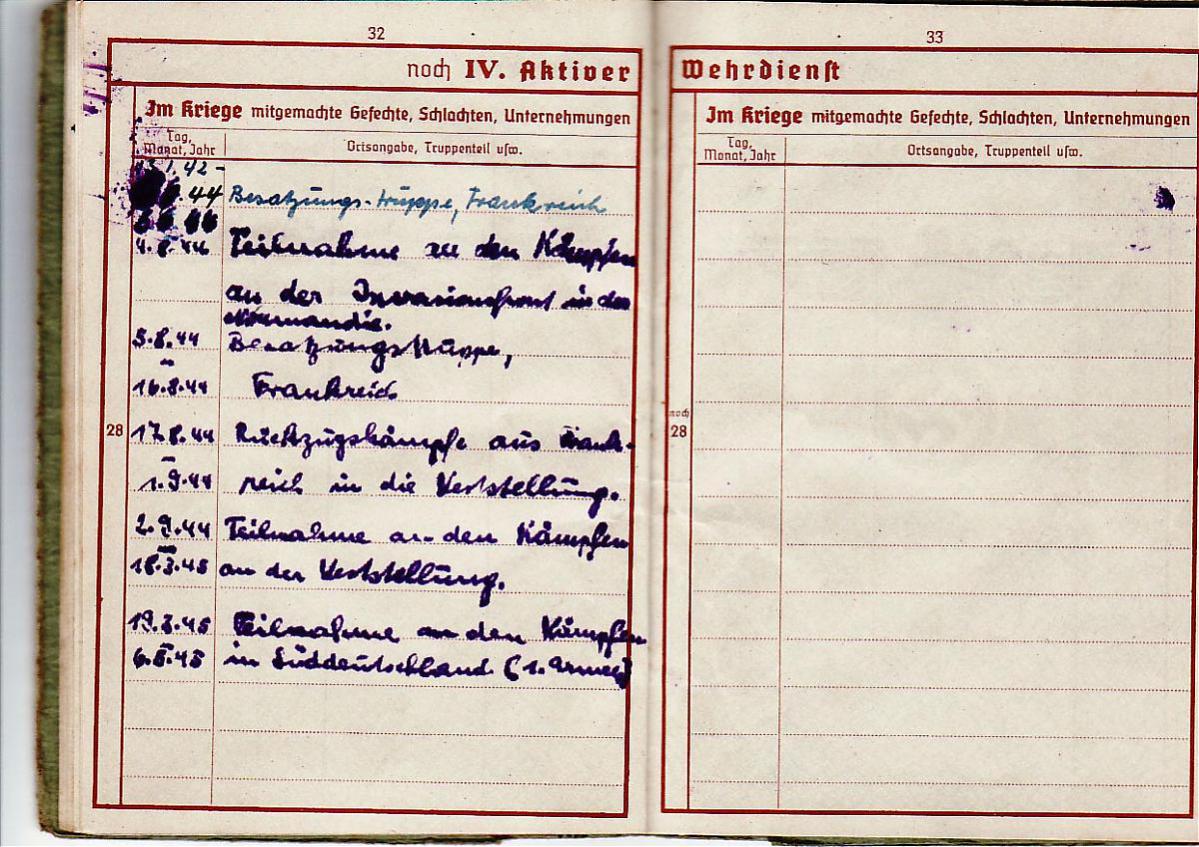 32
noch IV. Aktiver
Im Kriege mitgemachte Gefechte, Schlachten, Unternehmungen
Tag, Monat, Jahr
Ortsangabe, Truppenteil usw.
1.42-
44 Besatzungs-truppe, Frankreich
4.8.44 Teilnahme an den Kämpfen
an der Invasionsfront in der
Normandie.
5.8.44 Besatzungstruppe,
-
16.8.44 Frankreich
28
17.8.44 Rückzugskämpfe aus Frank-
-
1.9.44 reich in die Weststellung.
2.9.44 Teilnahme an den Kämpfen
-
18.3.45 an der Weststellung.
19.3.45 Teilnahme an den Kämpfen
-
6.5.45 in Süddeutschland (1. Armee)
33
Wehrdienst
Im Kriege mitgemachte Gefechte, Schlachten, Unternehmungen
Tag, Monat, Jahr
Ortsangabe, Truppenteil usw.
noch
28